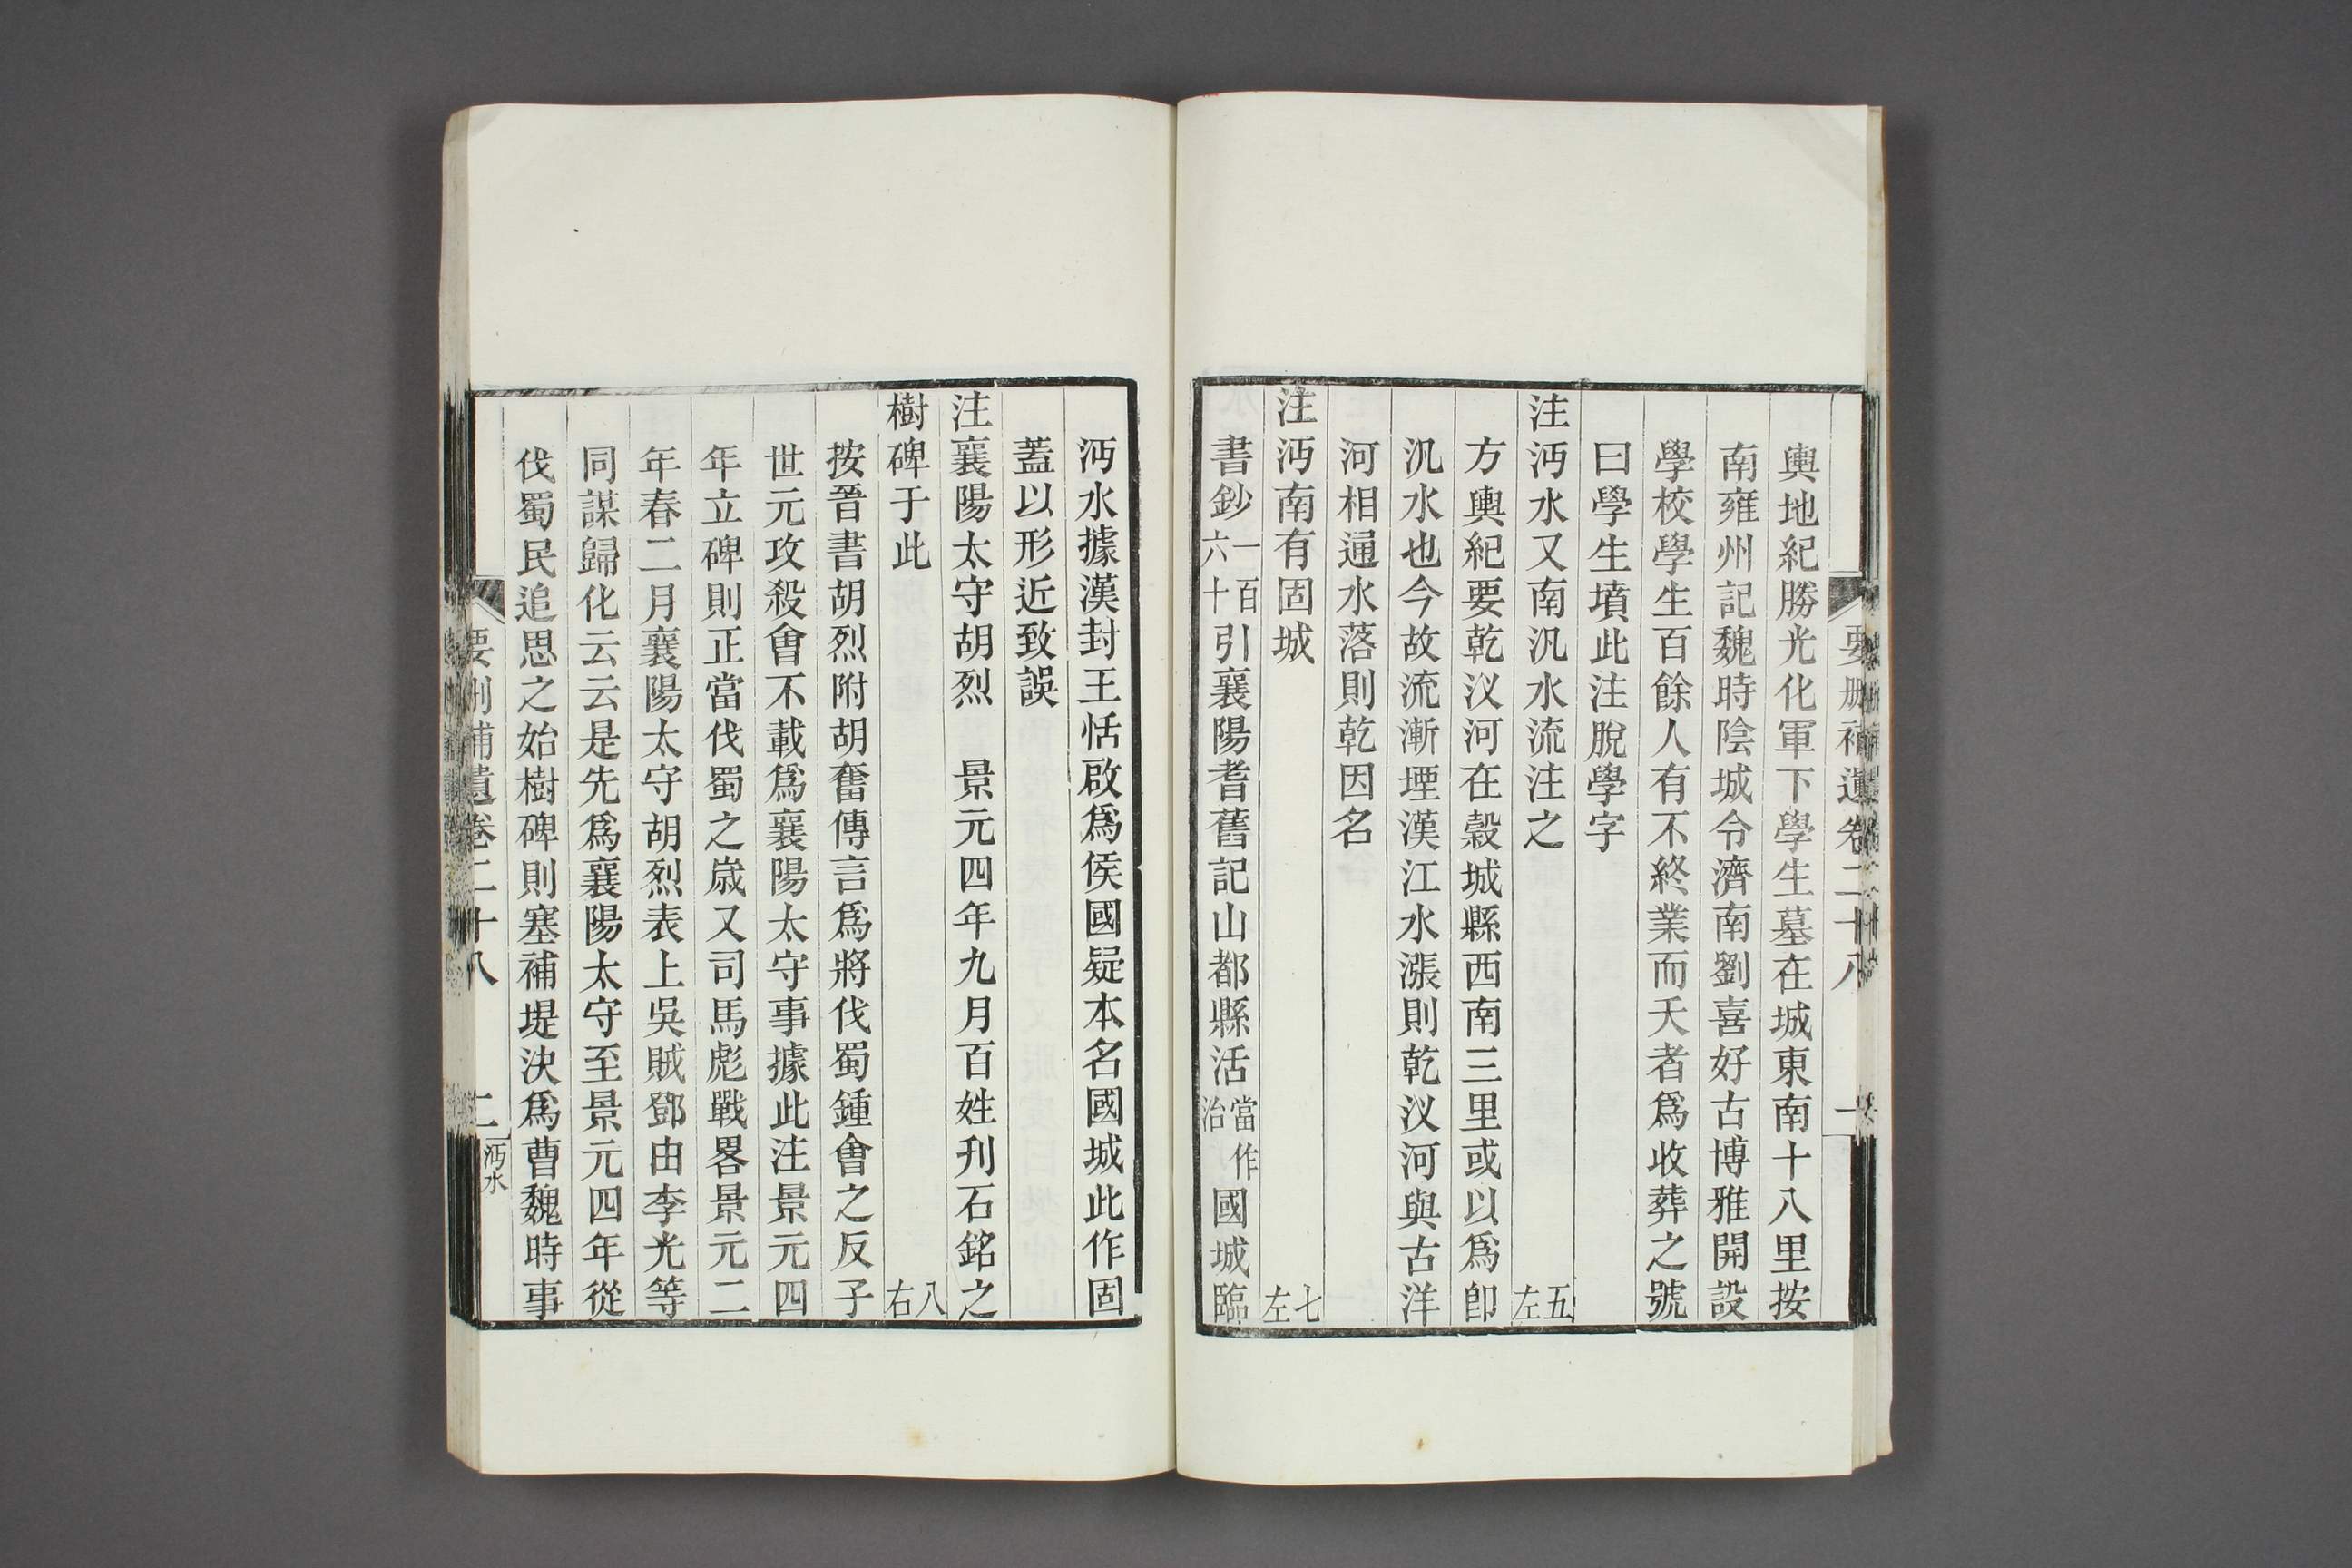 要刪補遺卷二十八
一
輿地紀勝光化軍下學生墓在城東南十八里按
南雍州記魏時陰城令濟南劉喜好古博雅開設
學校學生百餘人有不終業而夭者爲收葬之號
曰學生墳此注脫學字
注沔水又南汎水流注之 五左
方輿紀要乾汊河在穀城縣西南三里或以爲卽
汎水也今故流漸堙漢江水漲則乾汊河與古洋
河相通水落則乾因名
注沔南有固城 七左
書鈔一百六十引襄陽耆舊記山都縣活當作治國城臨
沔水據漢封王恬啟爲侯國疑本名國城此作固
蓋以形近致誤
注襄陽太守胡烈 景元四年九月百姓刋石銘之
樹碑于此 八右
按晉書胡烈附胡奮傳言爲將伐蜀鍾會之反子
世元攻殺會不載爲襄陽太守事據此注景元四
年立碑則正當伐蜀之歲又司馬彪戰畧景元二
年春二月襄陽太守胡烈表上吳賊鄧由李光等
同謀歸化云云是先爲襄陽太守至景元四年從
伐蜀民追思之始樹碑則塞補堤決爲曹魏時事
要刪補遺卷二十八
二
沔水